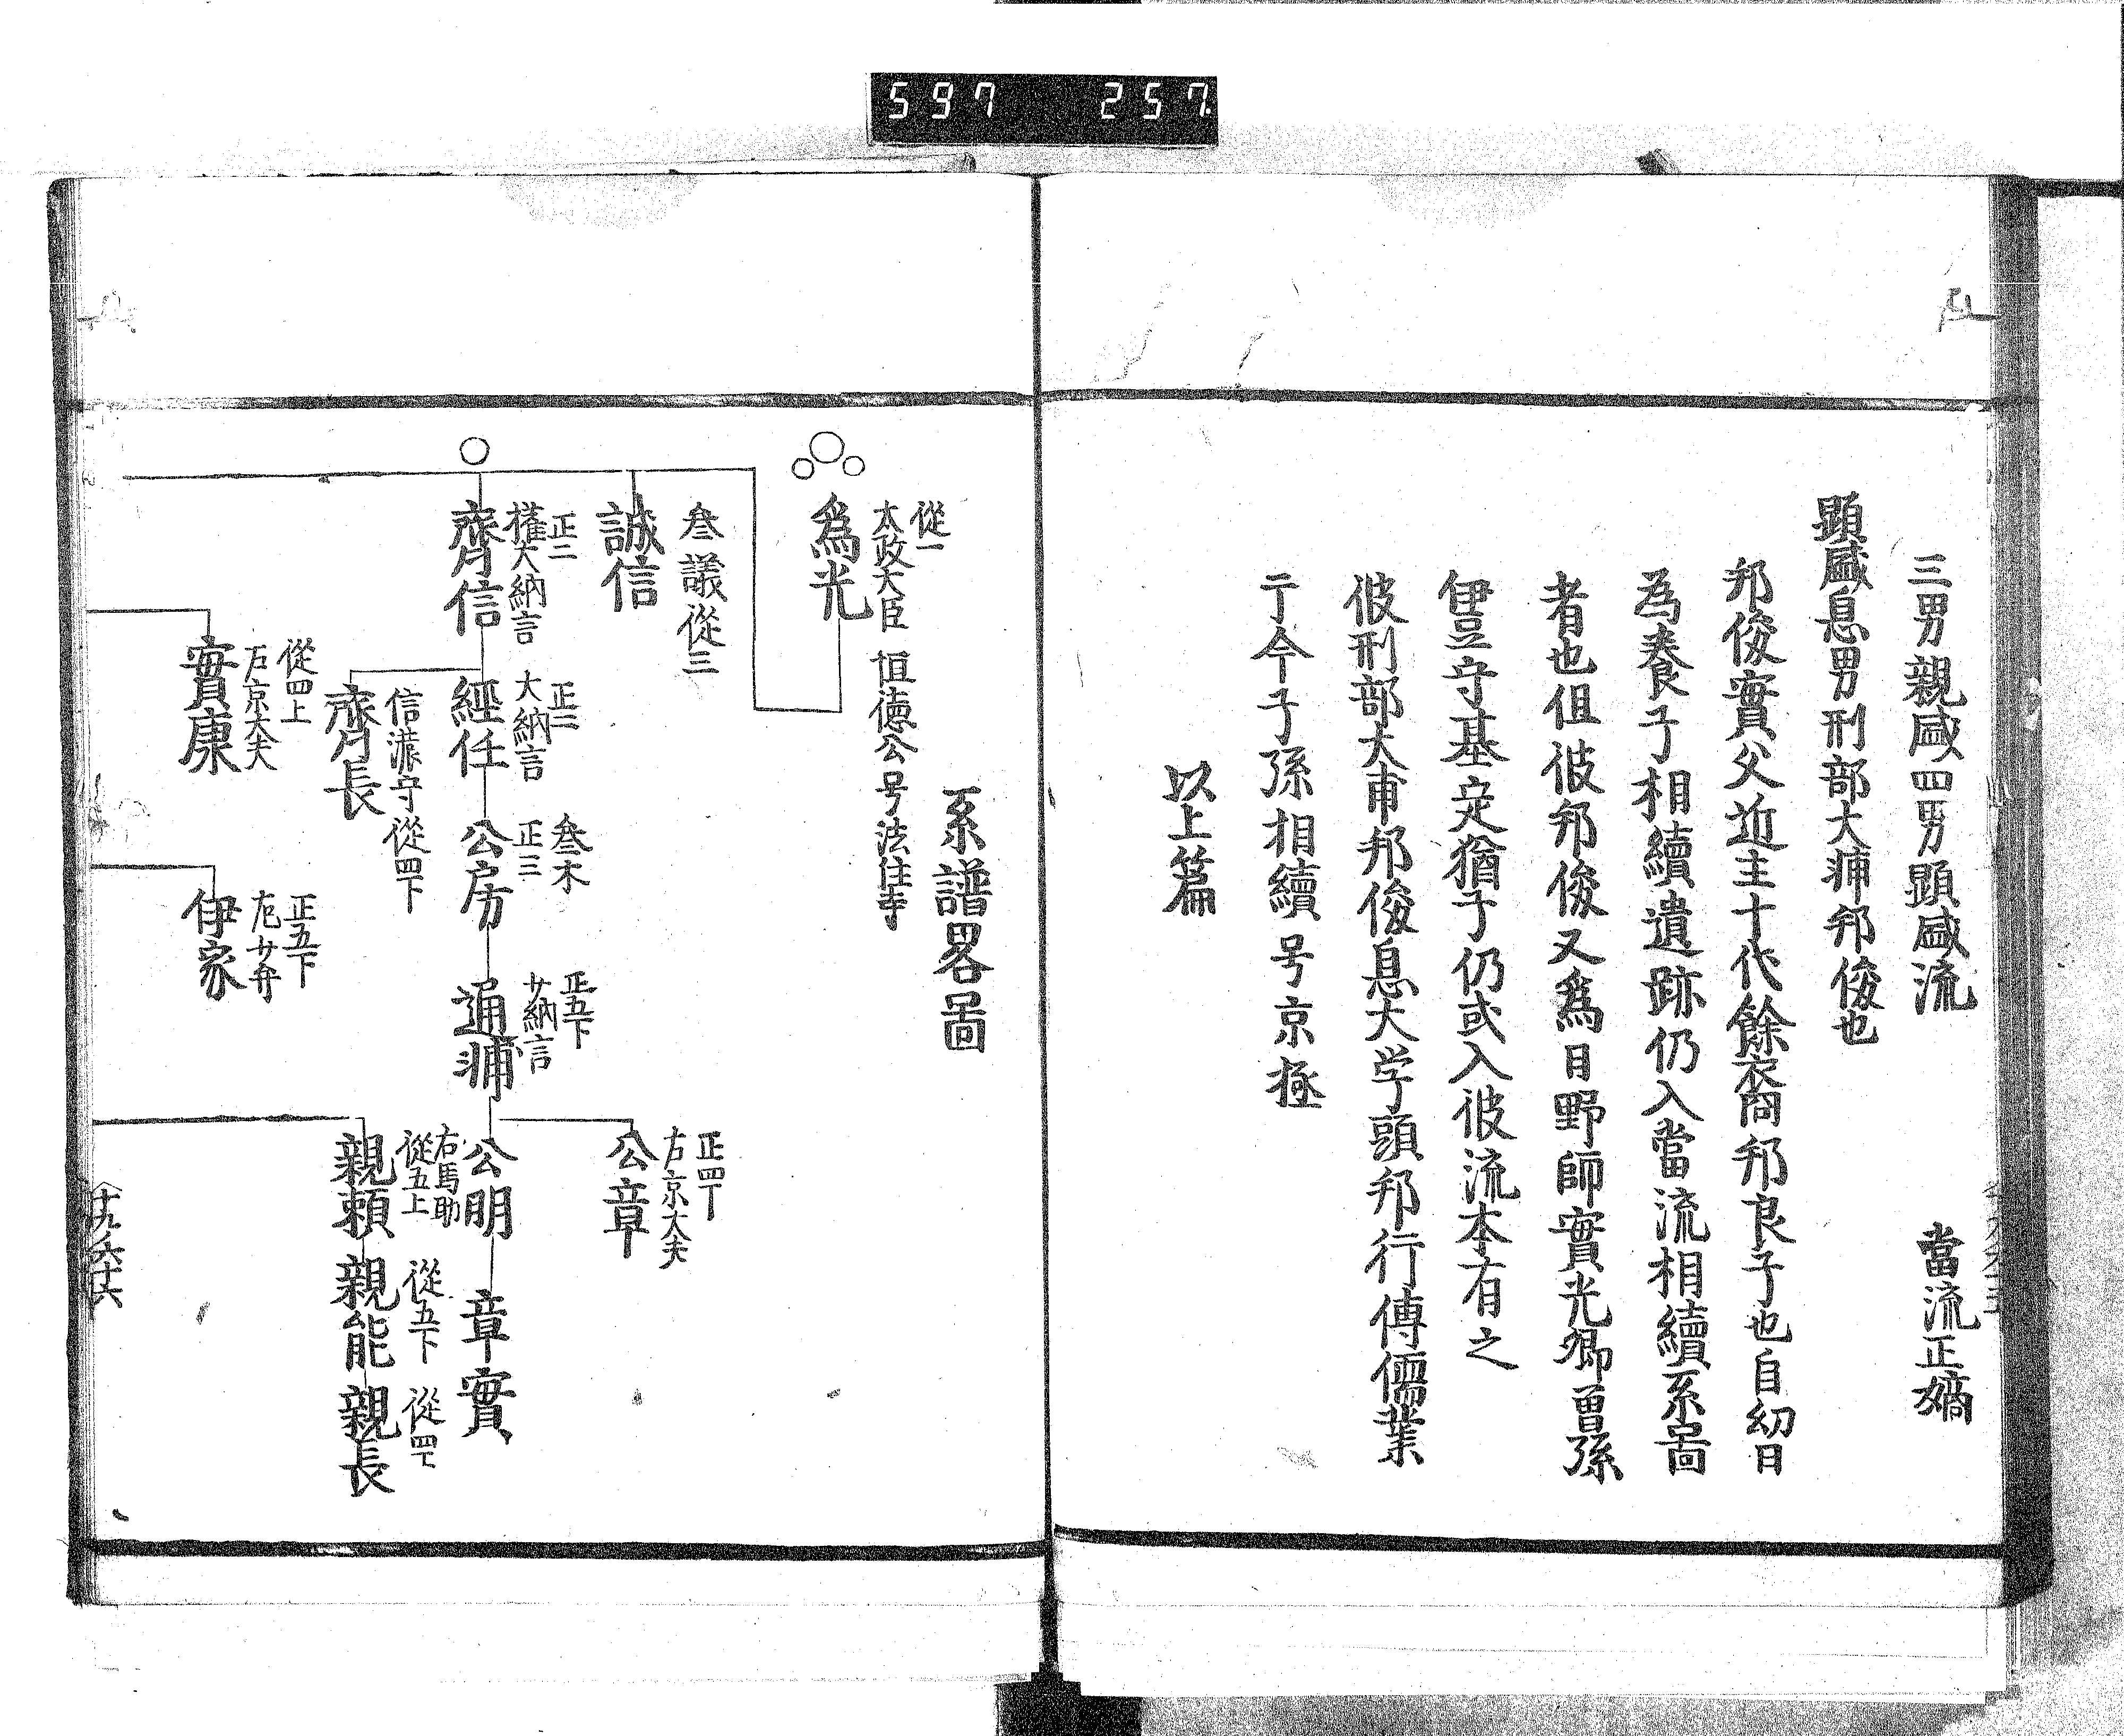 597 257
三男親盛四男顕盛流 當流正嫡
顕盛息男刑部大輔邦俊也
邦俊實父近主十代餘裔邦良子也自幼日
為養子相續遺跡仍入當流相續系啚
者也但彼邦俊又爲日野師實光卿曽孫
伊豆守基定猶子仍或入彼流本有之
彼刑部大甫邦俊息大学頭邦行傳儒業
于今子孫相續号京極
以上篇
系譜畧啚
從一
太政大臣 恒徳公号法住寺
爲光
叁議從三
誠信
正二
権大納言
齊信
正二
大納言
經任
信濃守從四下
齊長
叁木
正三
公房
正五下
廿納言
通輔
正四下
右京大夫
公章
公明
章實
右馬助
從五上
親頼
從五下
親能
從四下
親長
從四上
右京大夫
實康
正五下
左廿弁
伊家
十九ノ六十六